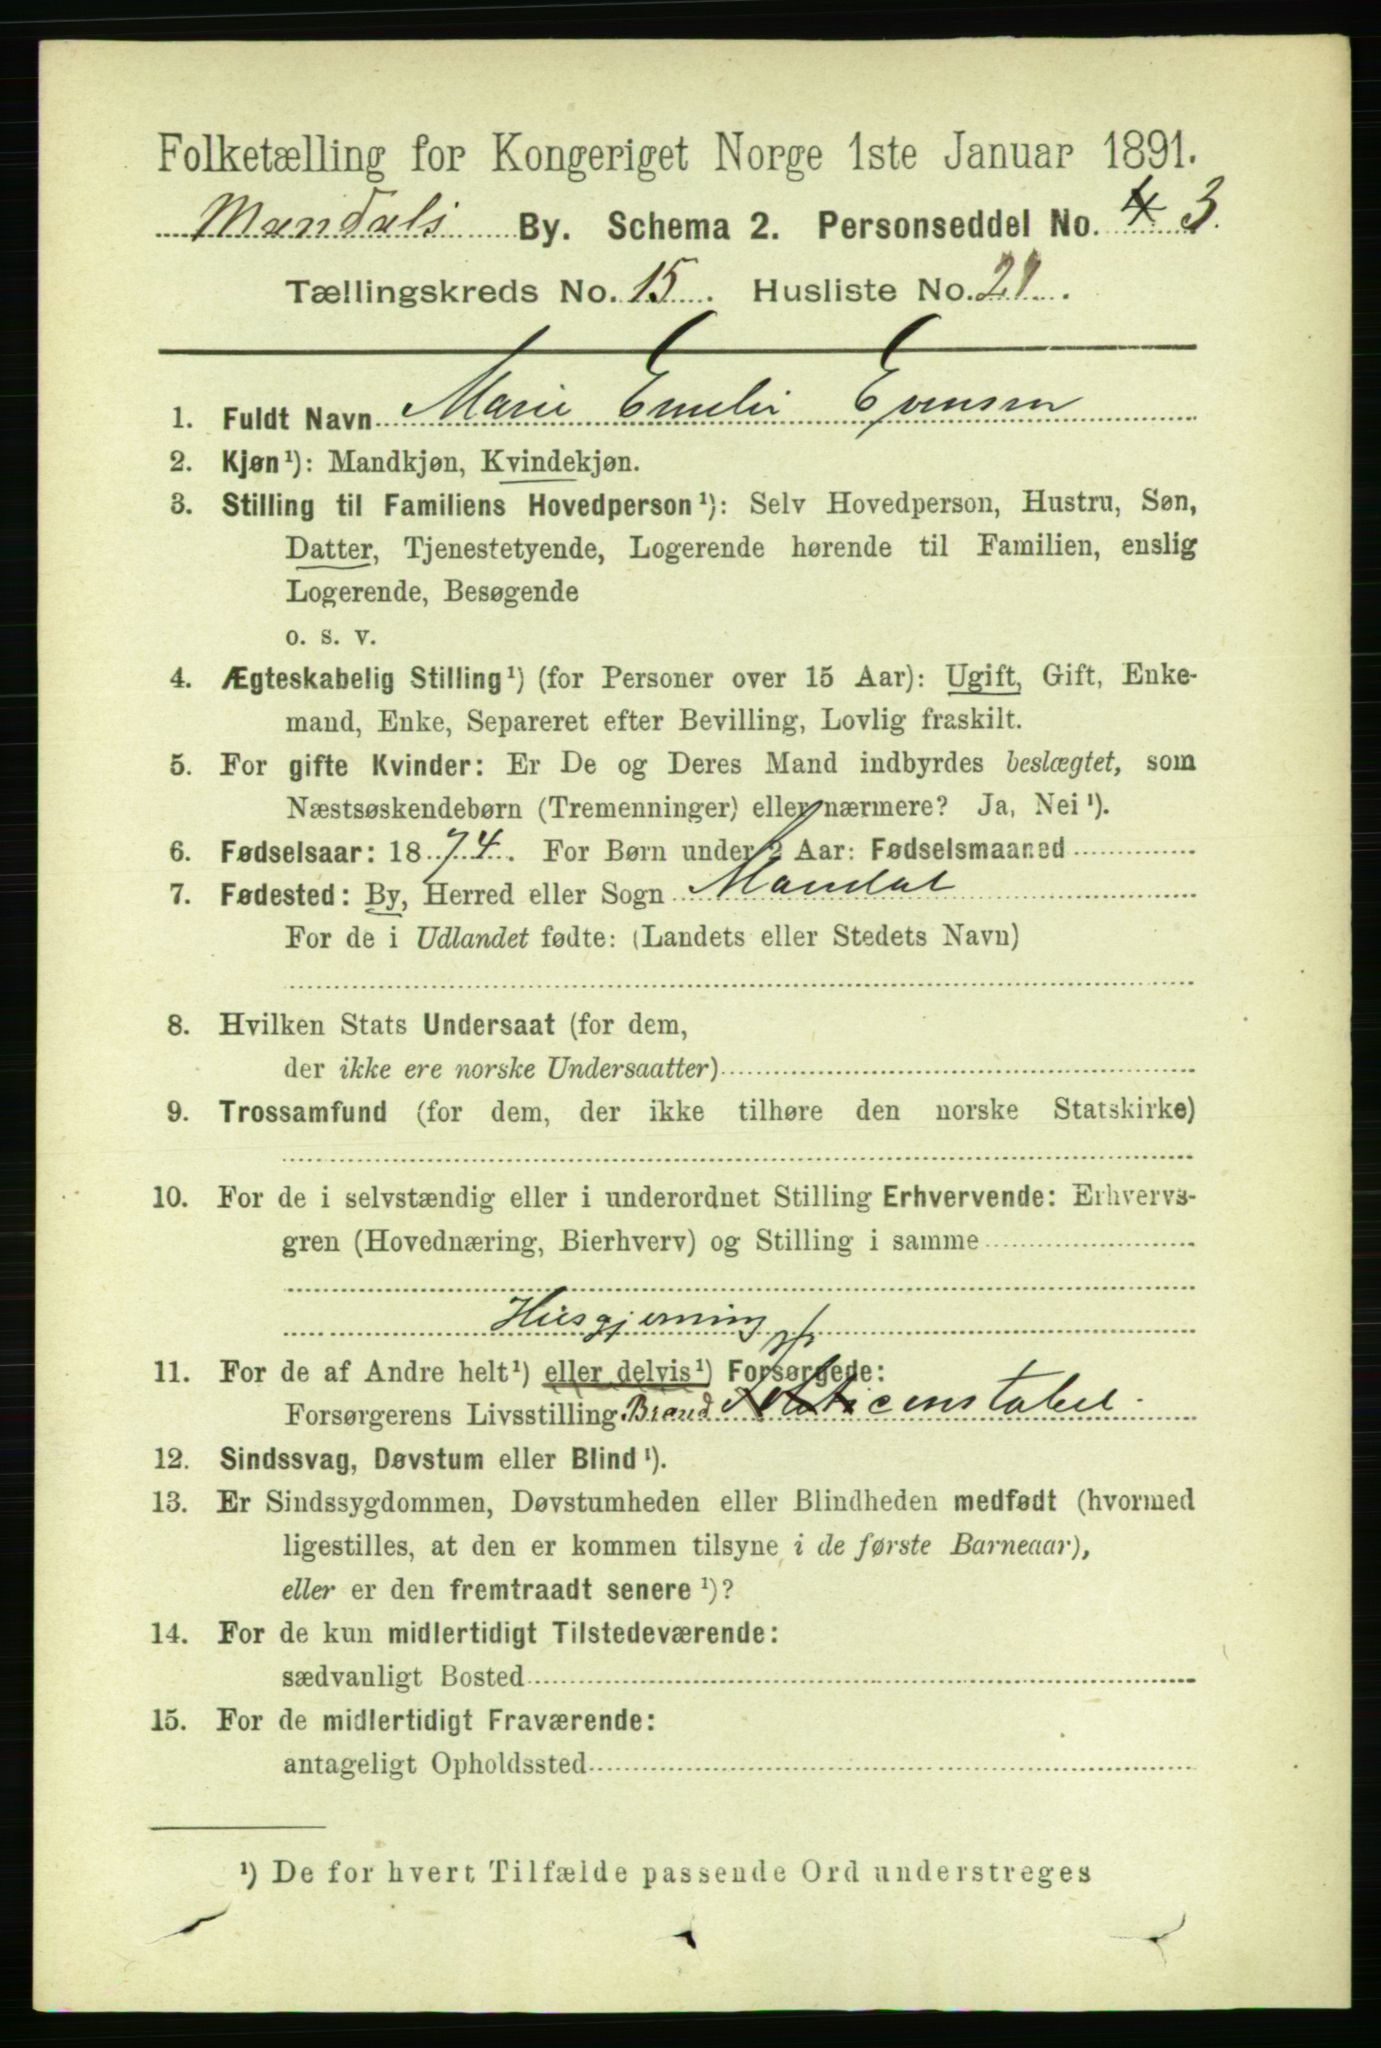 Folketælling for Kongeriget Norge 1ste Januar 1891.
Mandals By. Schema 2. Personseddel No. 4 3.
Tællingskreds No. 15. Husliste No. 21.
1. Fuldt Navn Marie Emelie Evensen
2. Kjøn¹): Mandkjøn, Kvindekjøn.
3. Stilling til Familiens Hovedperson¹): Selv Hovedperson, Hustru, Søn,
Datter, Tjenestetyende, Logerende hørende til Familien, enslig
Logerende, Besøgende
o. s. v.
4. Ægteskabelig Stilling¹) (for Personer over 15 Aar): Ugift, Gift, Enke-
mand, Enke, Separeret efter Bevilling, Lovlig fraskilt.
5. For gifte Kvinder: Er De og Deres Mand indbyrdes beslægtet, som
Næstsøskendebørn (Tremenninger) eller nærmere? Ja, Nei¹).
6. Fødselsaar: 1874. For Børn under 2 Aar: Fødselsmaaned
7. Fødested: By, Herred eller Sogn Mandal
For de i Udlandet fødte: (Landets eller Stedets Navn)
8. Hvilken Stats Undersaat (for dem,
der ikke ere norske Undersaatter)
9. Trossamfund (for dem, der ikke tilhøre den norske Statskirke)
10. For de i selvstændig eller i underordnet Stilling Erhvervende: Erhvervs-
gren (Hovednæring, Bierhverv) og Stilling i samme
Husgjerning
11. For de af Andre helt¹) eller delvis¹) Forsørgede:
Forsørgerens Livsstilling Brand constabel.
12. Sindssvag, Døvstum eller Blind¹).
13. Er Sindssygdommen, Døvstumheden eller Blindheden medfødt (hvormed
ligestilles, at den er kommen tilsyne i de første Barneaar),
eller er den fremtraadt senere¹)?
14. For de kun midlertidigt Tilstedeværende:
sædvanligt Bosted
15. For de midlertidigt Fraværende:
antageligt Opholdssted
¹) De for hvert Tilfælde passende Ord understreges